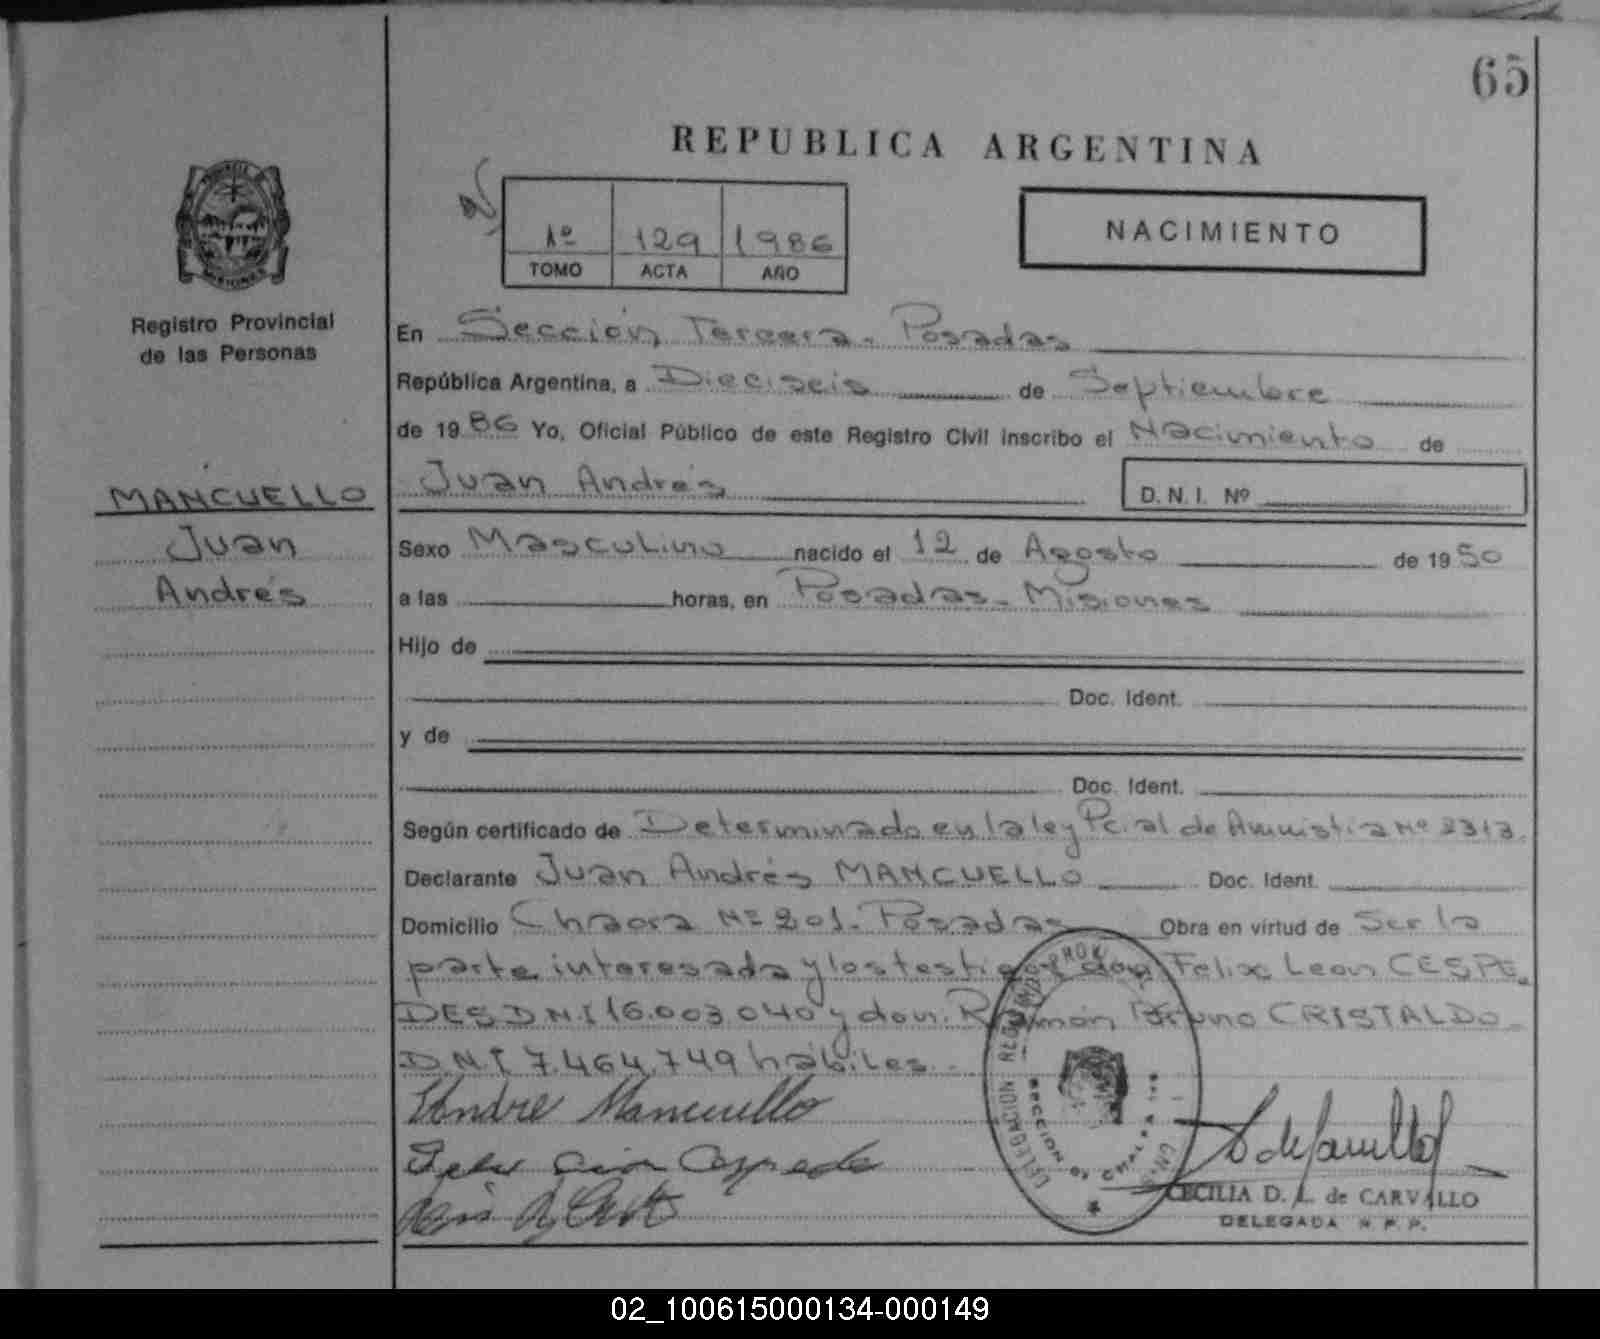 65
REPUBLICA ARGENTINA
1º 129 1986
TOMO ACTA AÑO
NACIMIENTO
Registro Provincial
de las Personas
MANCUELLO
Juan
Andrés
En Sección Tercera. Posadas
República Argentina, a Dieciseis de Septiembre
de 1986 Yo, Oficial Público de este Registro Civil inscribo el Nacimiento de
Juan Andrés D. N. I. Nº
Sexo Masculino nacido el 12 de Agosto de 1950
a las horas, en Posadas - Misiones
Hijo de
Doc. Ident.
y de
Doc. Ident.
Según certificado de Determinado en la ley Pcial de Amnistia Nº 2313.
Declarante Juan Andrés MANCUELLO Doc. Ident.
Domicilio Chacra Nº 201. Posadas Obra en virtud de Ser la
parte interesada y los testigos don Felix Leon CESPE-
DES D.N.I 16.003.040 y don. Ramón Bruno CRISTALDO-
D.N.I 7.464.749 hábiles.-
Andre Mancuello
CECILIA D. L. de CARVALLO
DELEGADA R. P. P.
02_100615000134-000149